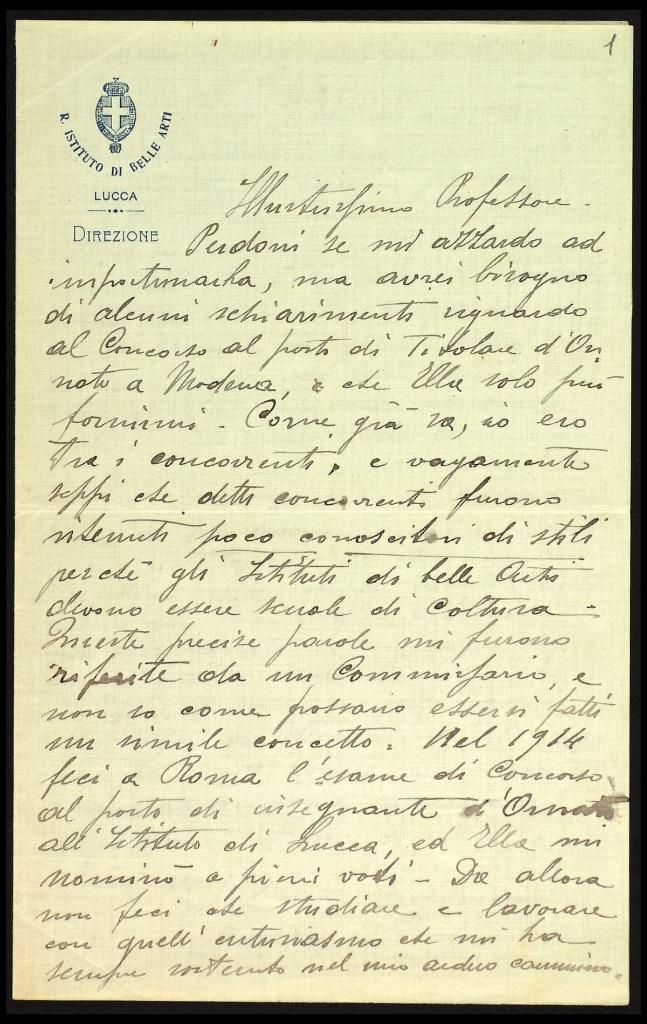 1
R. ISTITUTO DI BELLE ARTI
LUCCA
DIREZIONE
Illustrissimo Professore -
Perdoni se mi azzardo ad
importunarla, ma avrei bisogno
di alcuni schiarimenti riguardo
al Concorso al posto di Titolare d'Or=
nato a Modena, e che Ella solo può
fornirmi - Come già sa, io ero
tra i concorrenti, e vagamente
seppi che detti concorrenti furono
ritenuti poco conoscitori di stili
perchè gli Istituti di belle Arti
devono essere scuole di coltura -
Queste precise parole mi furono
riferite da un Commissario, e
non so come possano essersi fatti
un simile concetto. Nel 1914
feci a Roma l'esame di Concorso
al posto di insegnante d'Ornato
all'Istituto di Lucca, ed Ella mi
nominò a pieni voti - Da allora
non feci che studiare e lavorare
con quell'entusiasmo che mi ha
sempre sostenuto nel mio arduo cammino.